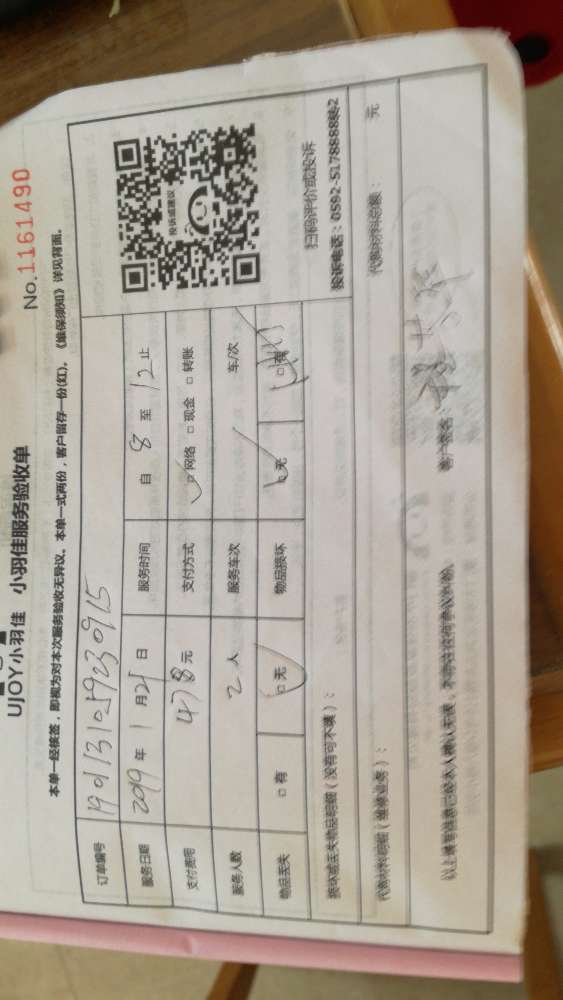 UJOY小羽佳 小羽佳服务验收单
No.1161490
本单一经核签，即视为对本次服务验收无异议。本单一式两份，客户留存一份(红)。《维保须知》详见背面。
订单编号 190131059230915
服务日期 2019年 1月21日 服务时间 自 8 至 12止
支付费用 478元 支付方式 □网络 □现金 □转账
服务人数 2人 服务车次 车/次
物品丢失 □有 □无 物品损坏 □无 □有
投诉或建议
扫码评价或投诉
损坏或丢失物品明细（没有可不填）：
投诉电话：0592-5178888转2
代购材料明细（维修业务）： 代购材料总额： 元
以上填写信息已经本人确认无误，
客户签名：